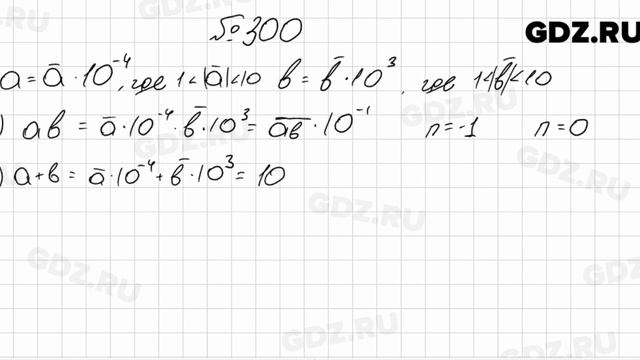 №300
GDZ.RU
a = ā · 10⁻⁴, где 1<|ā|<10 b = b̄ · 10³, где 1<|b̄|<10
) ab = ā · 10⁻⁴ · b̄ · 10³ = a̅b̅ · 10⁻¹ n = -1 n = 0
) a + b = ā · 10⁻⁴ + b̄ · 10³ = 10
GDZ.RU
GDZ.RU
GDZ.RU
GDZ.RU
GDZ.RU
GDZ.RU
GDZ.RU
GDZ.RU